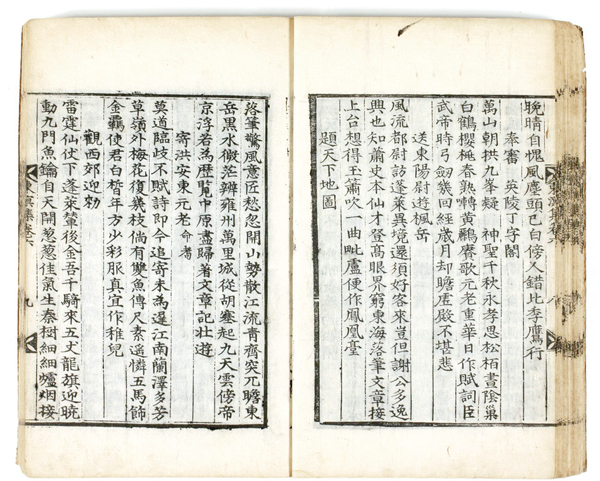 晚晴自愧風塵頭已白傍人錯比季鷹行
奉審 英陵丁字閣
萬山朝拱九峯疑 神聖千秋永孝思松栢晝陰巢
白鶴櫻梴春熟囀黃鸝賡歌元老重華日作賦詞臣
武帝時弓劒幾回經歲月却瞻虛殿不堪悲
送東陽尉遊楓岳
風流都尉訪蓬萊異境還須好客來豈但謝公多逸
興也知蕭史本仙才登高眼界窮東海落筆文章接
上台想得玉簫吹一曲毗盧便作鳳凰臺
題天下地圖
落筆驚風意匠愁忽開山勢散江流青齊突兀瞻東
岳黑水微茫辨雍州萬里城從胡塞起九天雲傍帝
京浮若爲歷覽中原盡歸著文章記壯遊
寄洪安東元老 命耇
莫道臨歧不賦詩即今追寄未爲遲江南蘭澤多芳
草嶺外梅花復幾枝倘有雙魚傳尺素遙憐五馬飾
金羈使君白晳年方少彩服眞宜作稚兒
觀西郊迎勅
雷霆仙仗下蓬萊輦後金吾千騎來五丈龍旗迎曉
動九門魚鑰自天開葱葱佳氣生秦樹細細爐烟接
東溟集卷六
九